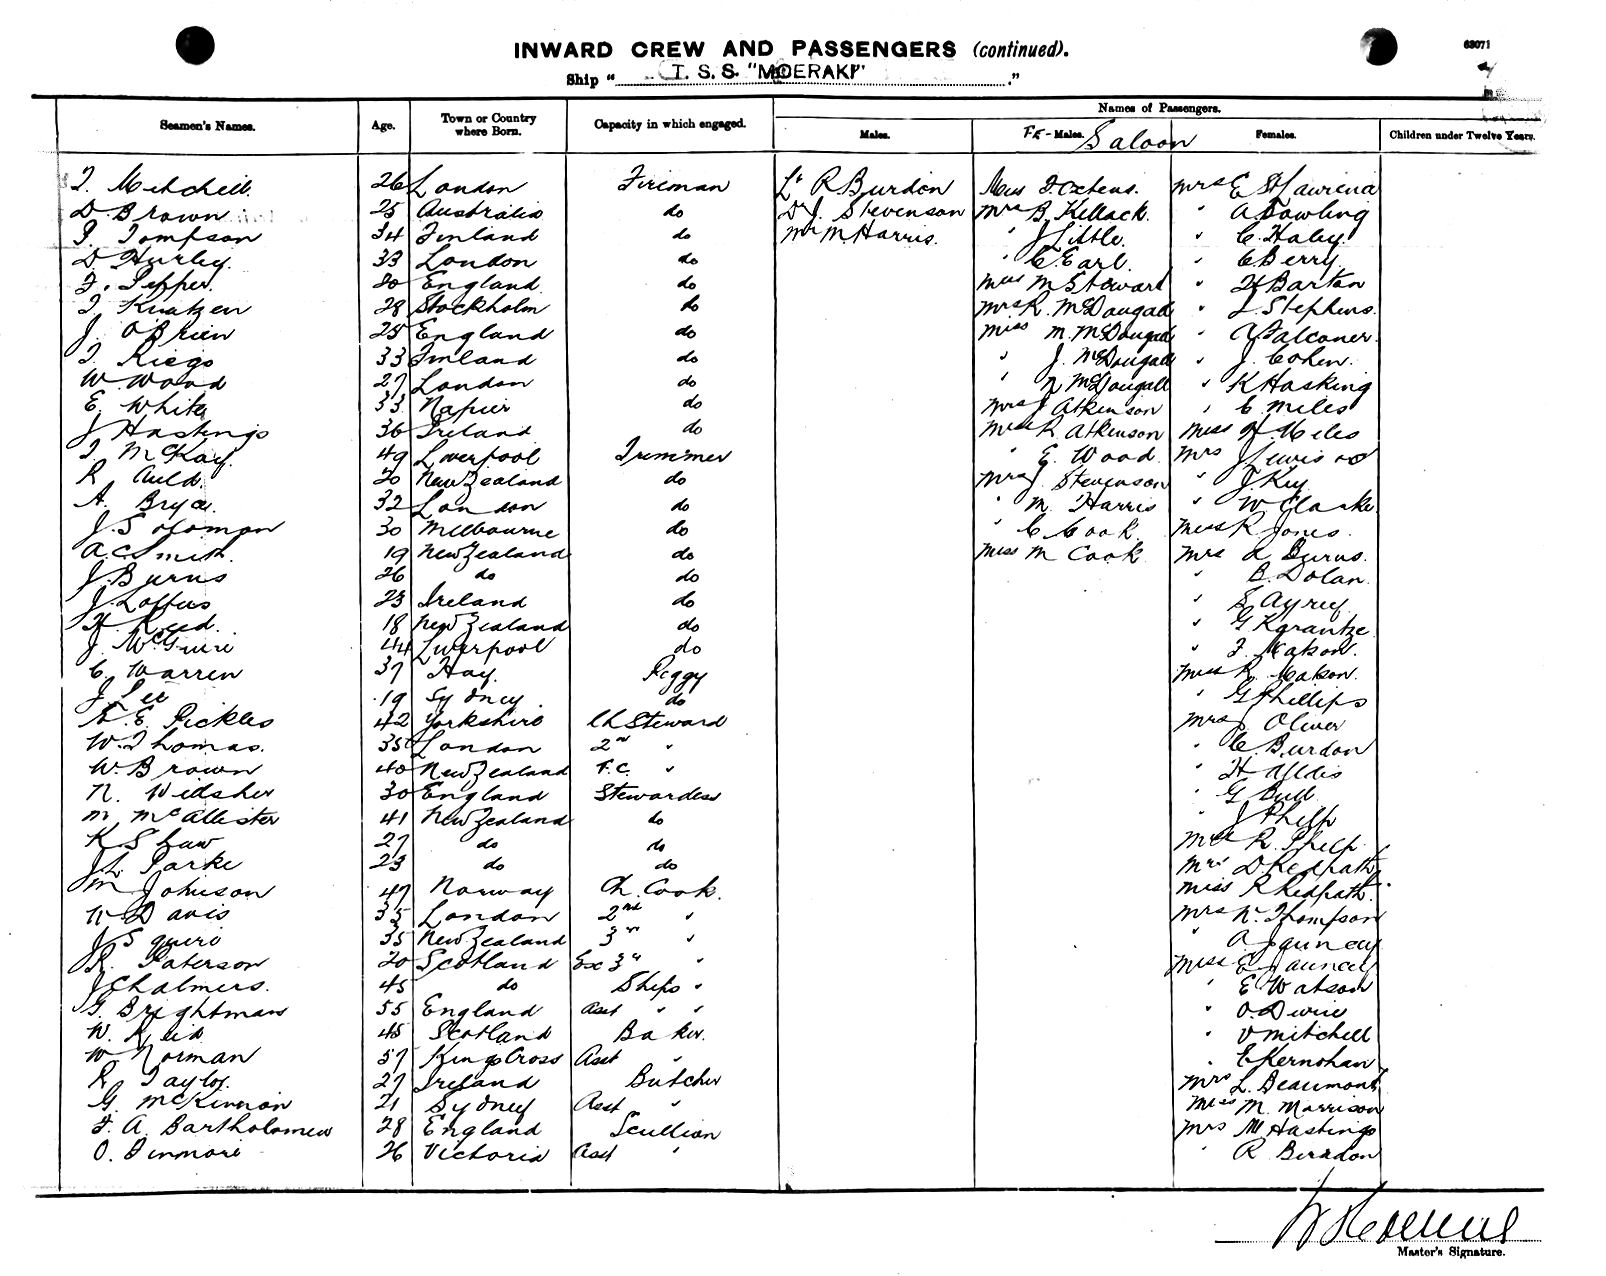 INWARD CREW AND PASSENGERS (continued).
63071
Ship " T. S. S. "MOERAKI" "
Names of Passengers.
Seamen's Names. Age. Town or Country where Born. Capacity in which engaged. Males. FE-Males. Saloon Females. Children under Twelve Years.
T. Mitchell. 26 London Fireman Lt R Burdon Miss Mrs E St
D. Brown 25 Australia do Dr J. Stevenson Mrs B. Kellack. " A Dowling
Tompson 34 Finland do Mr M. Harris. " J Little. " C. Haley.
D Hurley. 33 London do " C. Earl. " C Berry.
Pepper. 30 England. do Miss M Steward " H Barton
Knutzen 28 Stockholm do Mrs R. McDougall " L Stephens.
J. O'Brien 25 England do Miss M. McDougall " Falconer.
33 Finland do " J. McDougall " J. Cohen.
W. Wood 27 London do " N McDougall " K Hosking
E. White 33 Napier do Mrs J Atkinson " C. Miles
J Hastings 36 Ireland do Miss R. Atkinson Miss H. Miles
McKay. 49 Liverpool Trimmer " E. Wood. Mrs J Lewis
R Auld. 20 New Zealand do Mrs J. Stevenson " J. Key
A. Bryce. 32 London do " M. Harris " W Clarke
J. Solomon 30 Melbourne do " C Cook. Miss R Jones.
A. C. Smith. 19 New Zealand do Miss M Cook Mrs Burns.
J. Burns 26 do do " B. Dolan.
J. Loftus 23 Ireland do " Ayrey
H. Reed. 18 New Zealand do " G
J. McGuire 44 Liverpool do " Makson.
C. Warren 37 Hay. Peggy Miss R. Makson.
J Lee 19 Sydney. do " G Phillips
A. E. Pickles 42 Yorkshire Ch Steward Mrs J. Oliver
W. Thomas. 35 London 2nd " " C. Burdon
W. Brown 40 New Zealand F.C. " " H Aldis
N. 30 England Stewardess " G Bull
M. McAllister 41 New Zealand do " J Phelp
K Shaw 27 do do Miss R. Phelp
J. L. Parke 23 do do Mrs D Redpath
M Johnson 47 Norway Ch. Cook. Miss R Redpath.
W Davis 35 London 2nd " Mrs W. Thompson
J Squire 35 New Zealand 3rd " " A. Jauncey
R. Paterson 20 Scotland Ex 3rd " Miss E. Jauncey
J Chalmers. 45 do Ships " " E Watson
G. Brightman 55 England Asst " " " O. Dwire
W. Reid 45 Scotland Baker. " V Mitchell
W Norman 57 Kings Cross Asst " " E Kernohan
R Taylor. 27 Ireland Butcher Mrs L. Beaumont
G. McKinnon 21 Sydney Asst " Miss M. Morrison
F. A. Bartholomew 28 England Scullion Mrs M Hastings
O. Dinmore 26 Victoria Asst " " R Burdon
Master's Signature.